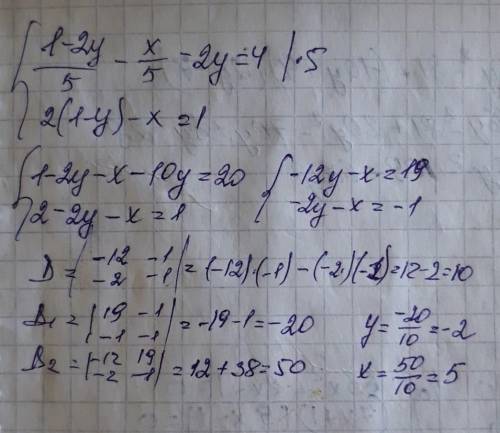 { (1-2y)/5 - x/5 - 2y = 4 | ·5
2(1-y) - x = 1
{ 1-2y-x-10y=20 { -12y-x=19
2-2y-x=1 -2y-x=-1
D = |-12 -1; -2 -1| = (-12)·(-1) - (-2)(-1) = 12-2=10
D1 = |19 -1; -1 -1| = -19-1=-20 y = -20/10 = -2
D2 = |-12 19; -2 -1| = 12+38=50 x = 50/10 = 5